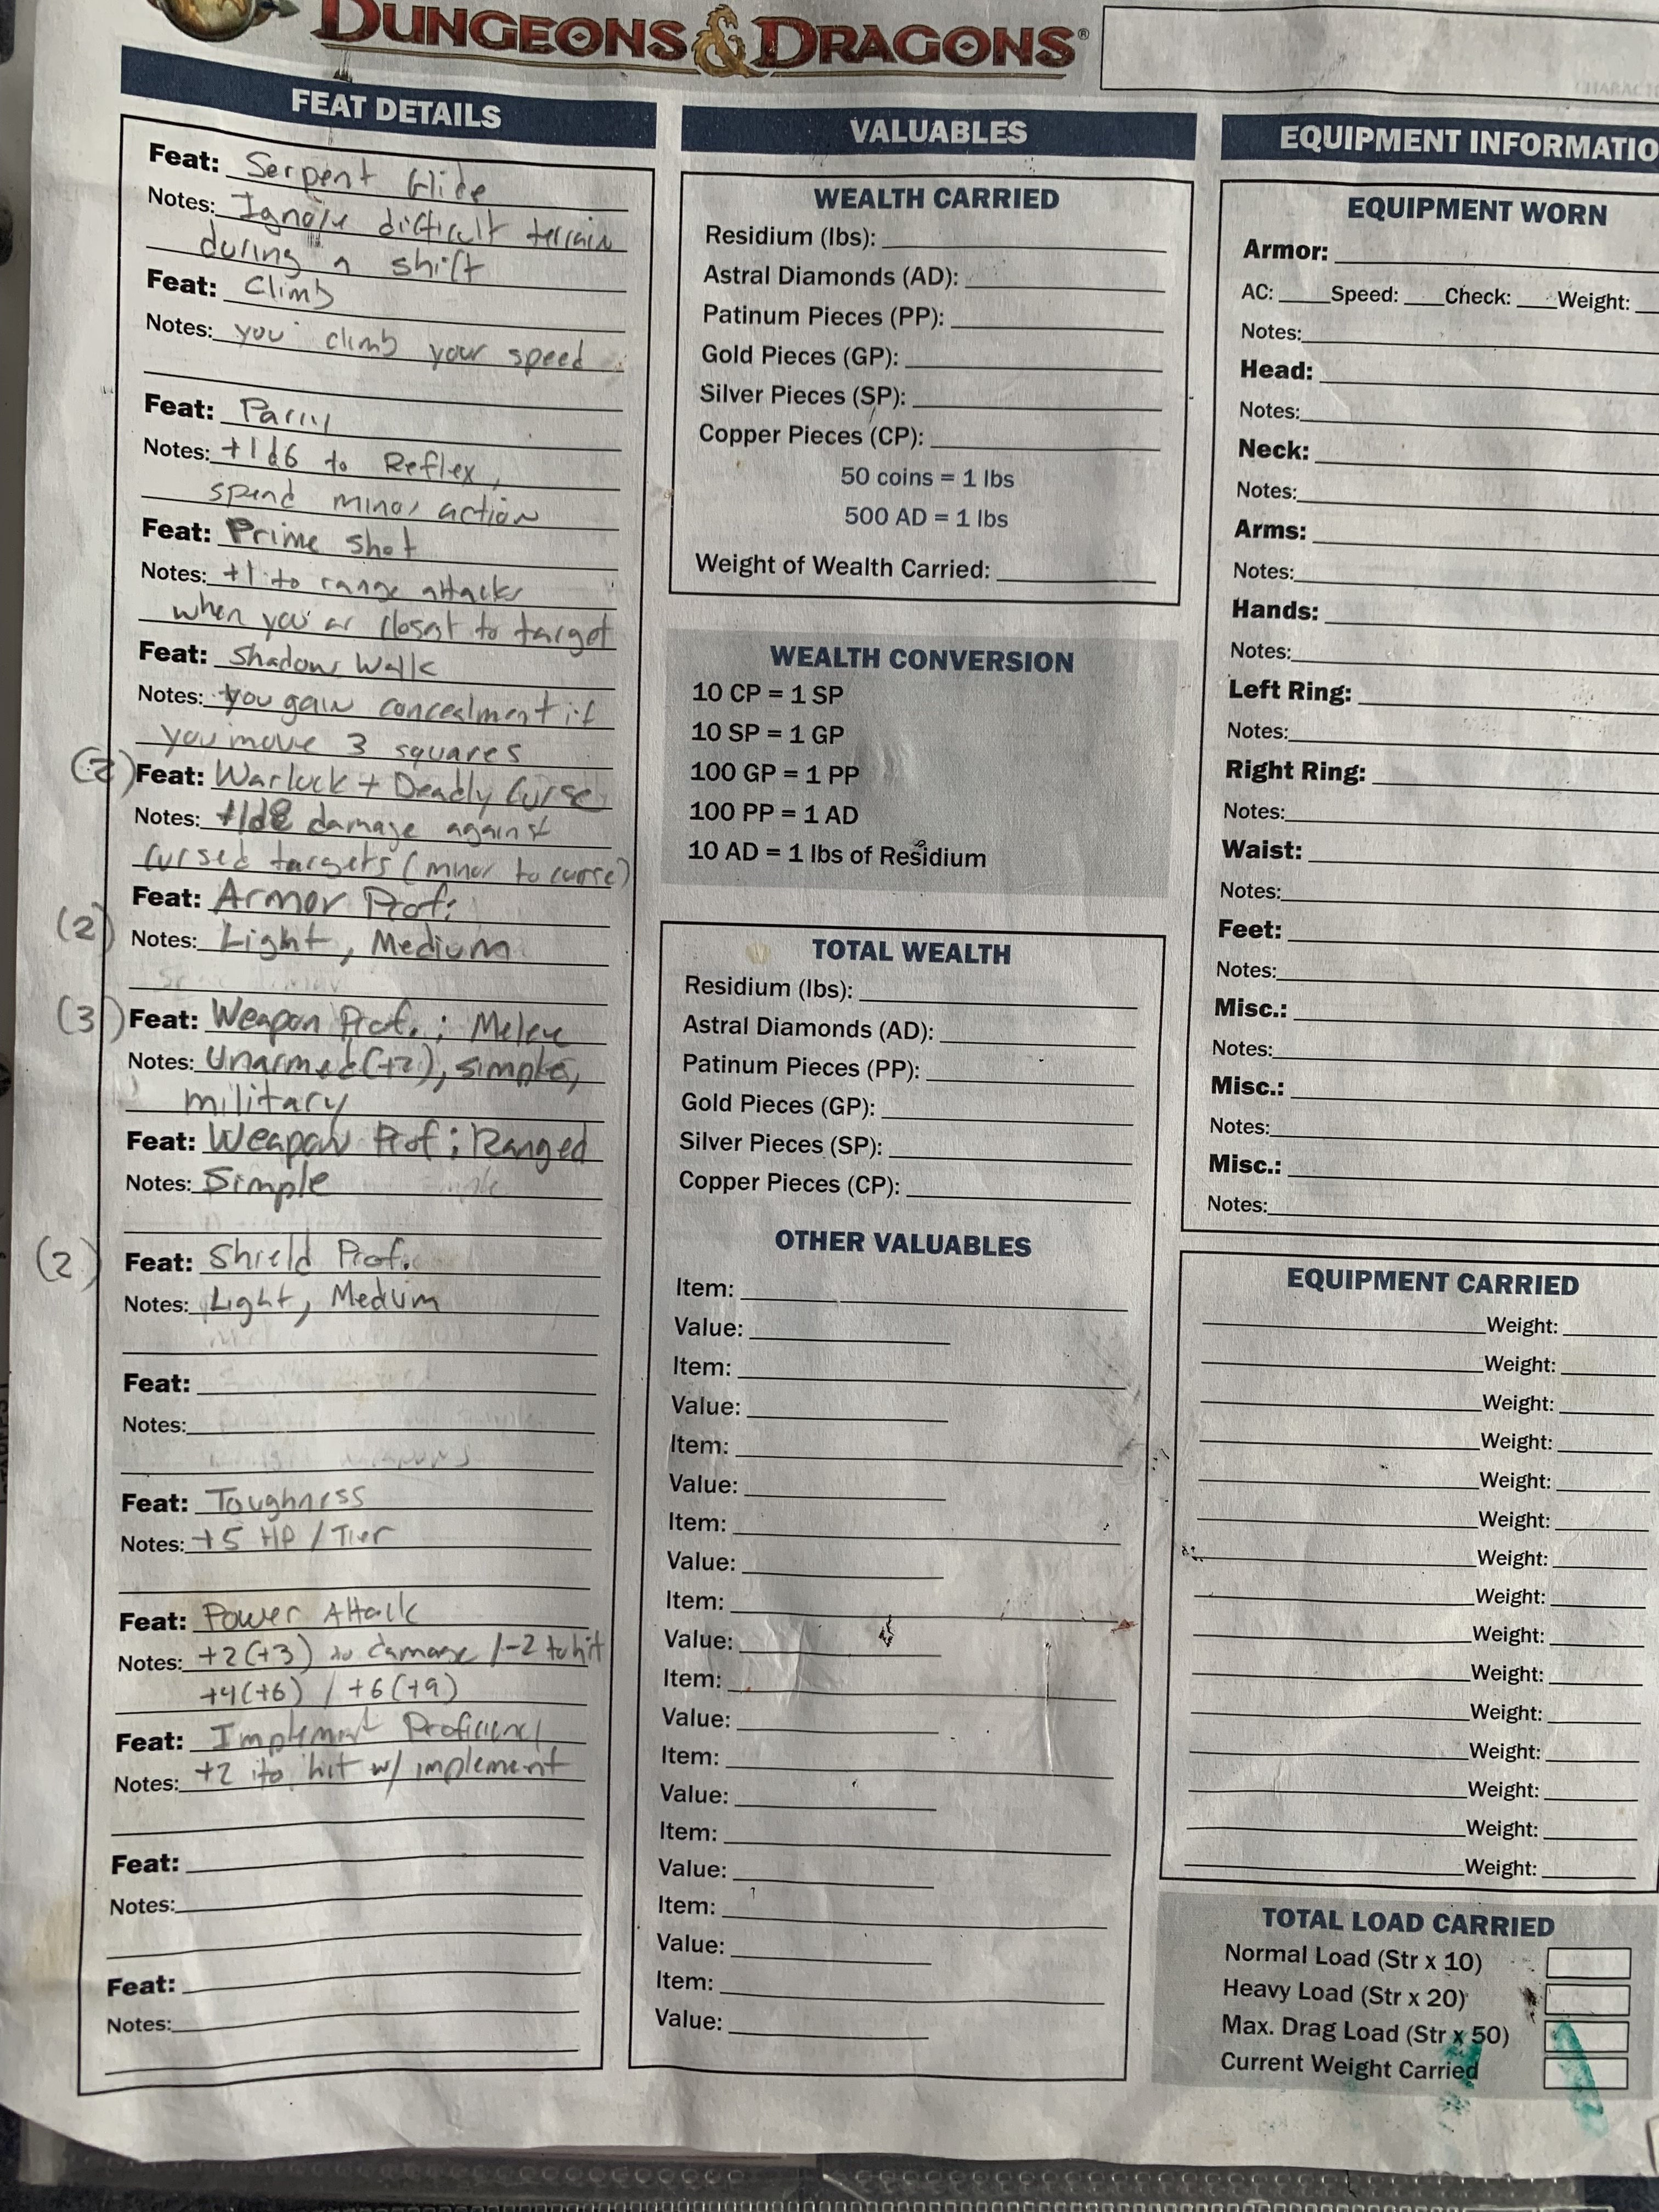 DUNGEONS & DRAGONS®
FEAT DETAILS
Feat: Serpent Glide
Notes: Ignore difficult terrain
during a shift
Feat: Climb
Notes: you climb your speed
Feat: Parry
Notes: +1d6 to Reflex,
spend minor action
Feat: Prime shot
Notes: +1 to range attacks
when you ar closest to target
Feat: Shadow Walk
Notes: you gain concealment if
you move 3 squares
(2) Feat: Warlock + Deadly Curse
Notes: +1d8 damage against
cursed targets (minor to curse)
Feat: Armor Prof:
(2) Notes: Light, Medium
(3) Feat: Weapon Prof.; Melee
Notes: Unarmed (+2), simple,
military
Feat: Weapon Prof; Ranged
Notes: Simple
(2) Feat: Shield Prof.
Notes: Light, Medium
Feat:
Notes:
Feat: Toughness
Notes: +5 HP / Tier
Feat: Power Attack
Notes: +2(+3) to damage / -2 to hit
+4(+6) / +6(+9)
Feat: Implement Proficiency
Notes: +2 to hit w/ implement
Feat:
Notes:
Feat:
Notes:
VALUABLES
WEALTH CARRIED
Residium (lbs):
Astral Diamonds (AD):
Patinum Pieces (PP):
Gold Pieces (GP):
Silver Pieces (SP):
Copper Pieces (CP):
50 coins = 1 lbs
500 AD = 1 lbs
Weight of Wealth Carried:
WEALTH CONVERSION
10 CP = 1 SP
10 SP = 1 GP
100 GP = 1 PP
100 PP = 1 AD
10 AD = 1 lbs of Residium
TOTAL WEALTH
Residium (lbs):
Astral Diamonds (AD):
Patinum Pieces (PP):
Gold Pieces (GP):
Silver Pieces (SP):
Copper Pieces (CP):
OTHER VALUABLES
Item:
Value:
Item:
Value:
Item:
Value:
Item:
Value:
Item:
Value:
Item:
Value:
Item:
Value:
Item:
Value:
Item:
Value:
Item:
Value:
EQUIPMENT INFORMATIO
EQUIPMENT WORN
Armor:
AC: Speed: Check: Weight:
Notes:
Head:
Notes:
Neck:
Notes:
Arms:
Notes:
Hands:
Notes:
Left Ring:
Notes:
Right Ring:
Notes:
Waist:
Notes:
Feet:
Notes:
Misc.:
Notes:
Misc.:
Notes:
Misc.:
Notes:
EQUIPMENT CARRIED
Weight:
Weight:
Weight:
Weight:
Weight:
Weight:
Weight:
Weight:
Weight:
Weight:
Weight:
Weight:
Weight:
Weight:
Weight:
TOTAL LOAD CARRIED
Normal Load (Str x 10)
Heavy Load (Str x 20)
Max. Drag Load (Str x 50)
Current Weight Carried